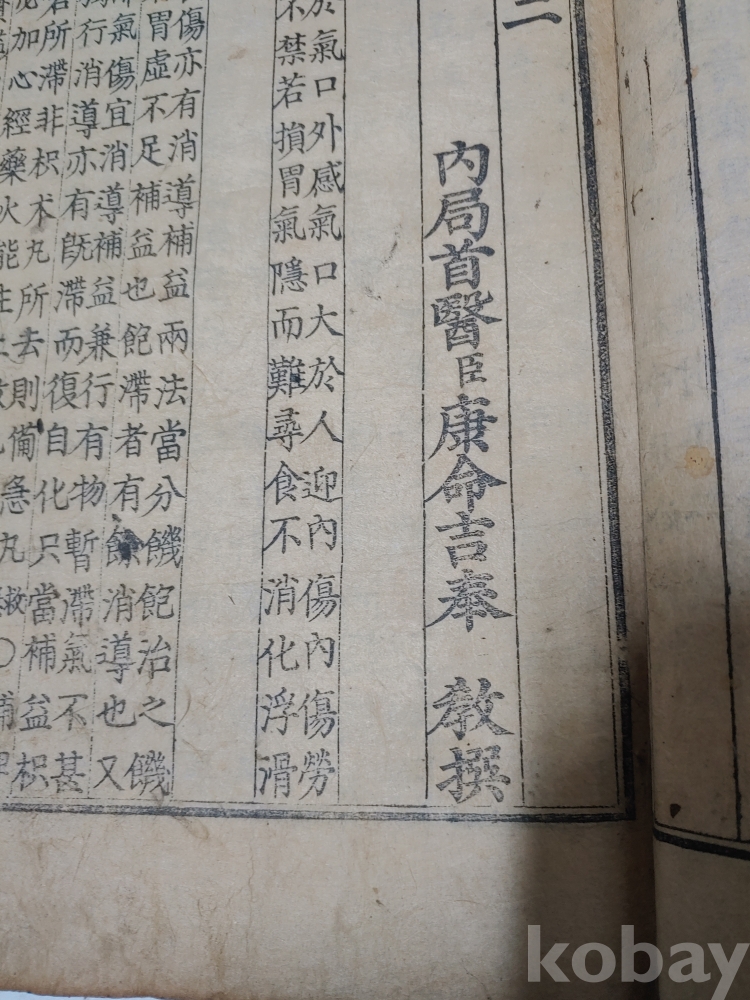 二
內局首醫臣康命吉奉 教撰
於氣口外感氣口大於人迎內傷內傷勞
不禁若損胃氣隱而難尋食不消化浮滑
傷亦有消導補益兩法當分饑飽治之饑
胃虛不足補益也飽滯者有餘消導也又
氣傷宜消導補益兼行有物暫滯氣不甚
行消導亦有旣滯而復自化只當補益枳
所滯非枳朮丸所去則備急丸救○補
加心經藥火能生